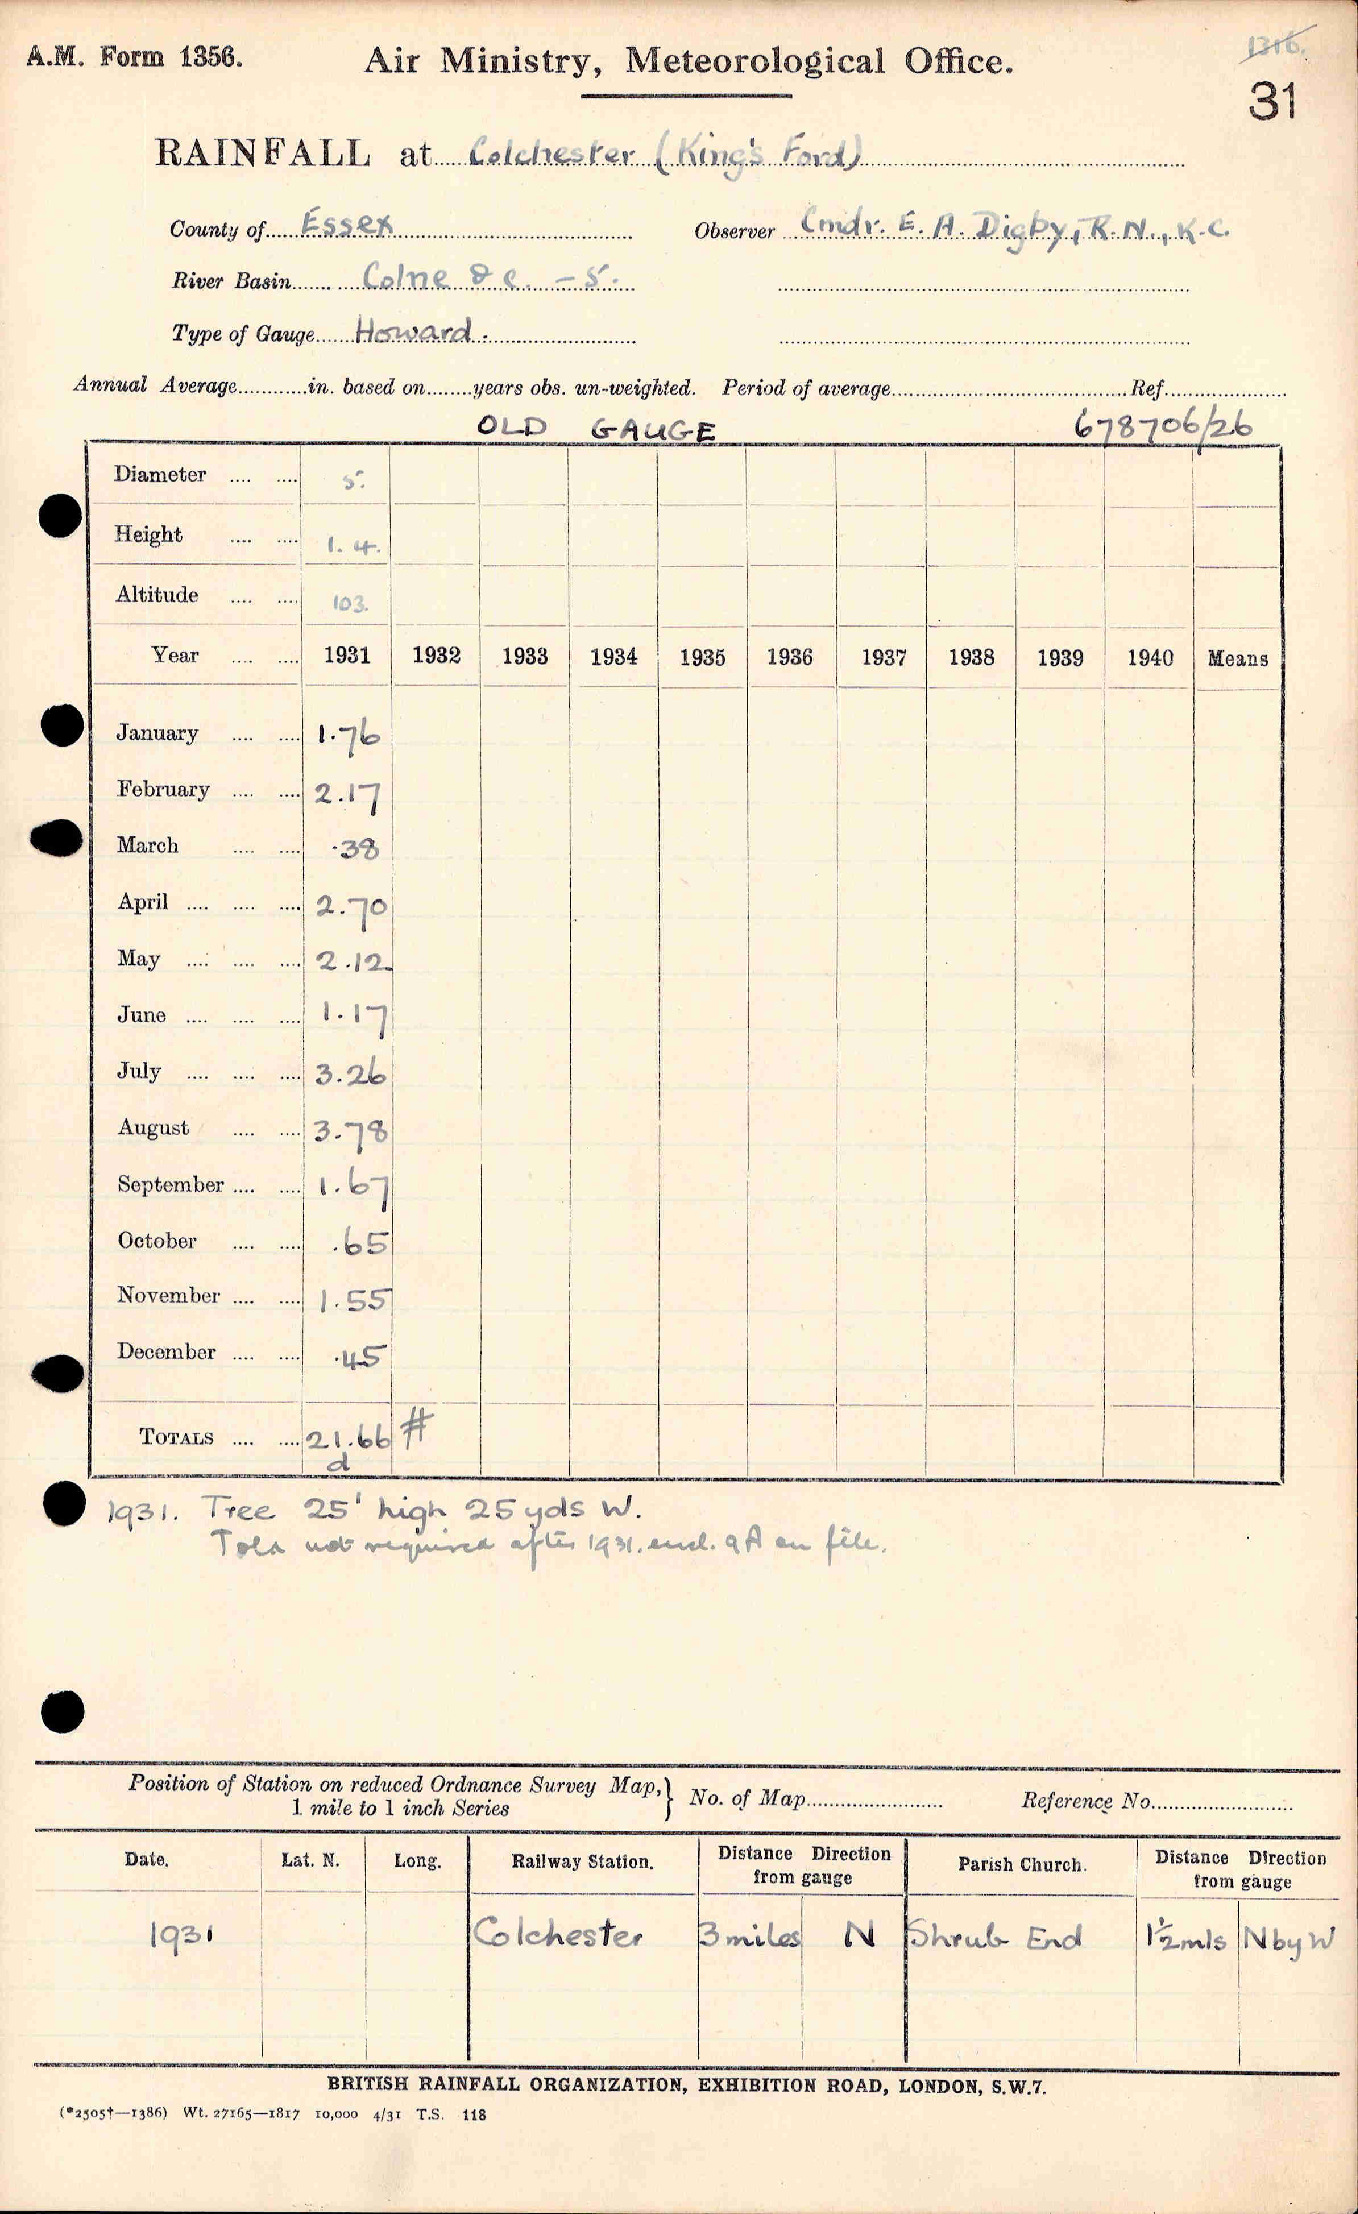 A.M. Form 1356. Air Ministry, Meteorological Office. 1316.
31
RAINFALL at Colchester (King's Ford)
County of Essex Observer Cmdr. E. A. Digby, R.N., K.C.
River Basin Colne &c. - 5.
Type of Gauge Howard.
Annual Average in. based on years obs. un-weighted. Period of average Ref.
OLD GAUGE 678706/26
Diameter 5.
Height 1. 4.
Altitude 103.
Year 1931 1932 1933 1934 1935 1936 1937 1938 1939 1940 Means
January 1.76
February 2.17
March .38
April 2.70
May 2.12
June 1.17
July 3.26
August 3.78
September 1.67
October .65
November 1.55
December .45
TOTALS 21.66 #
d
1931. Tree 25' high 25 yds W.
Told not required after 1931. encl. 9A on file.
Position of Station on reduced Ordnance Survey Map,} No. of Map Reference No.
1 mile to 1 inch Series
Date. Lat. N. Long. Railway Station. Distance Direction from gauge Parish Church. Distance Direction from gauge
1931 Colchester 3 miles N Shrub End 1½ mls N by W
BRITISH RAINFALL ORGANIZATION, EXHIBITION ROAD, LONDON, S.W.7.
(*2505†—1386) Wt. 27165—1817 10,000 4/31 T.S. 118